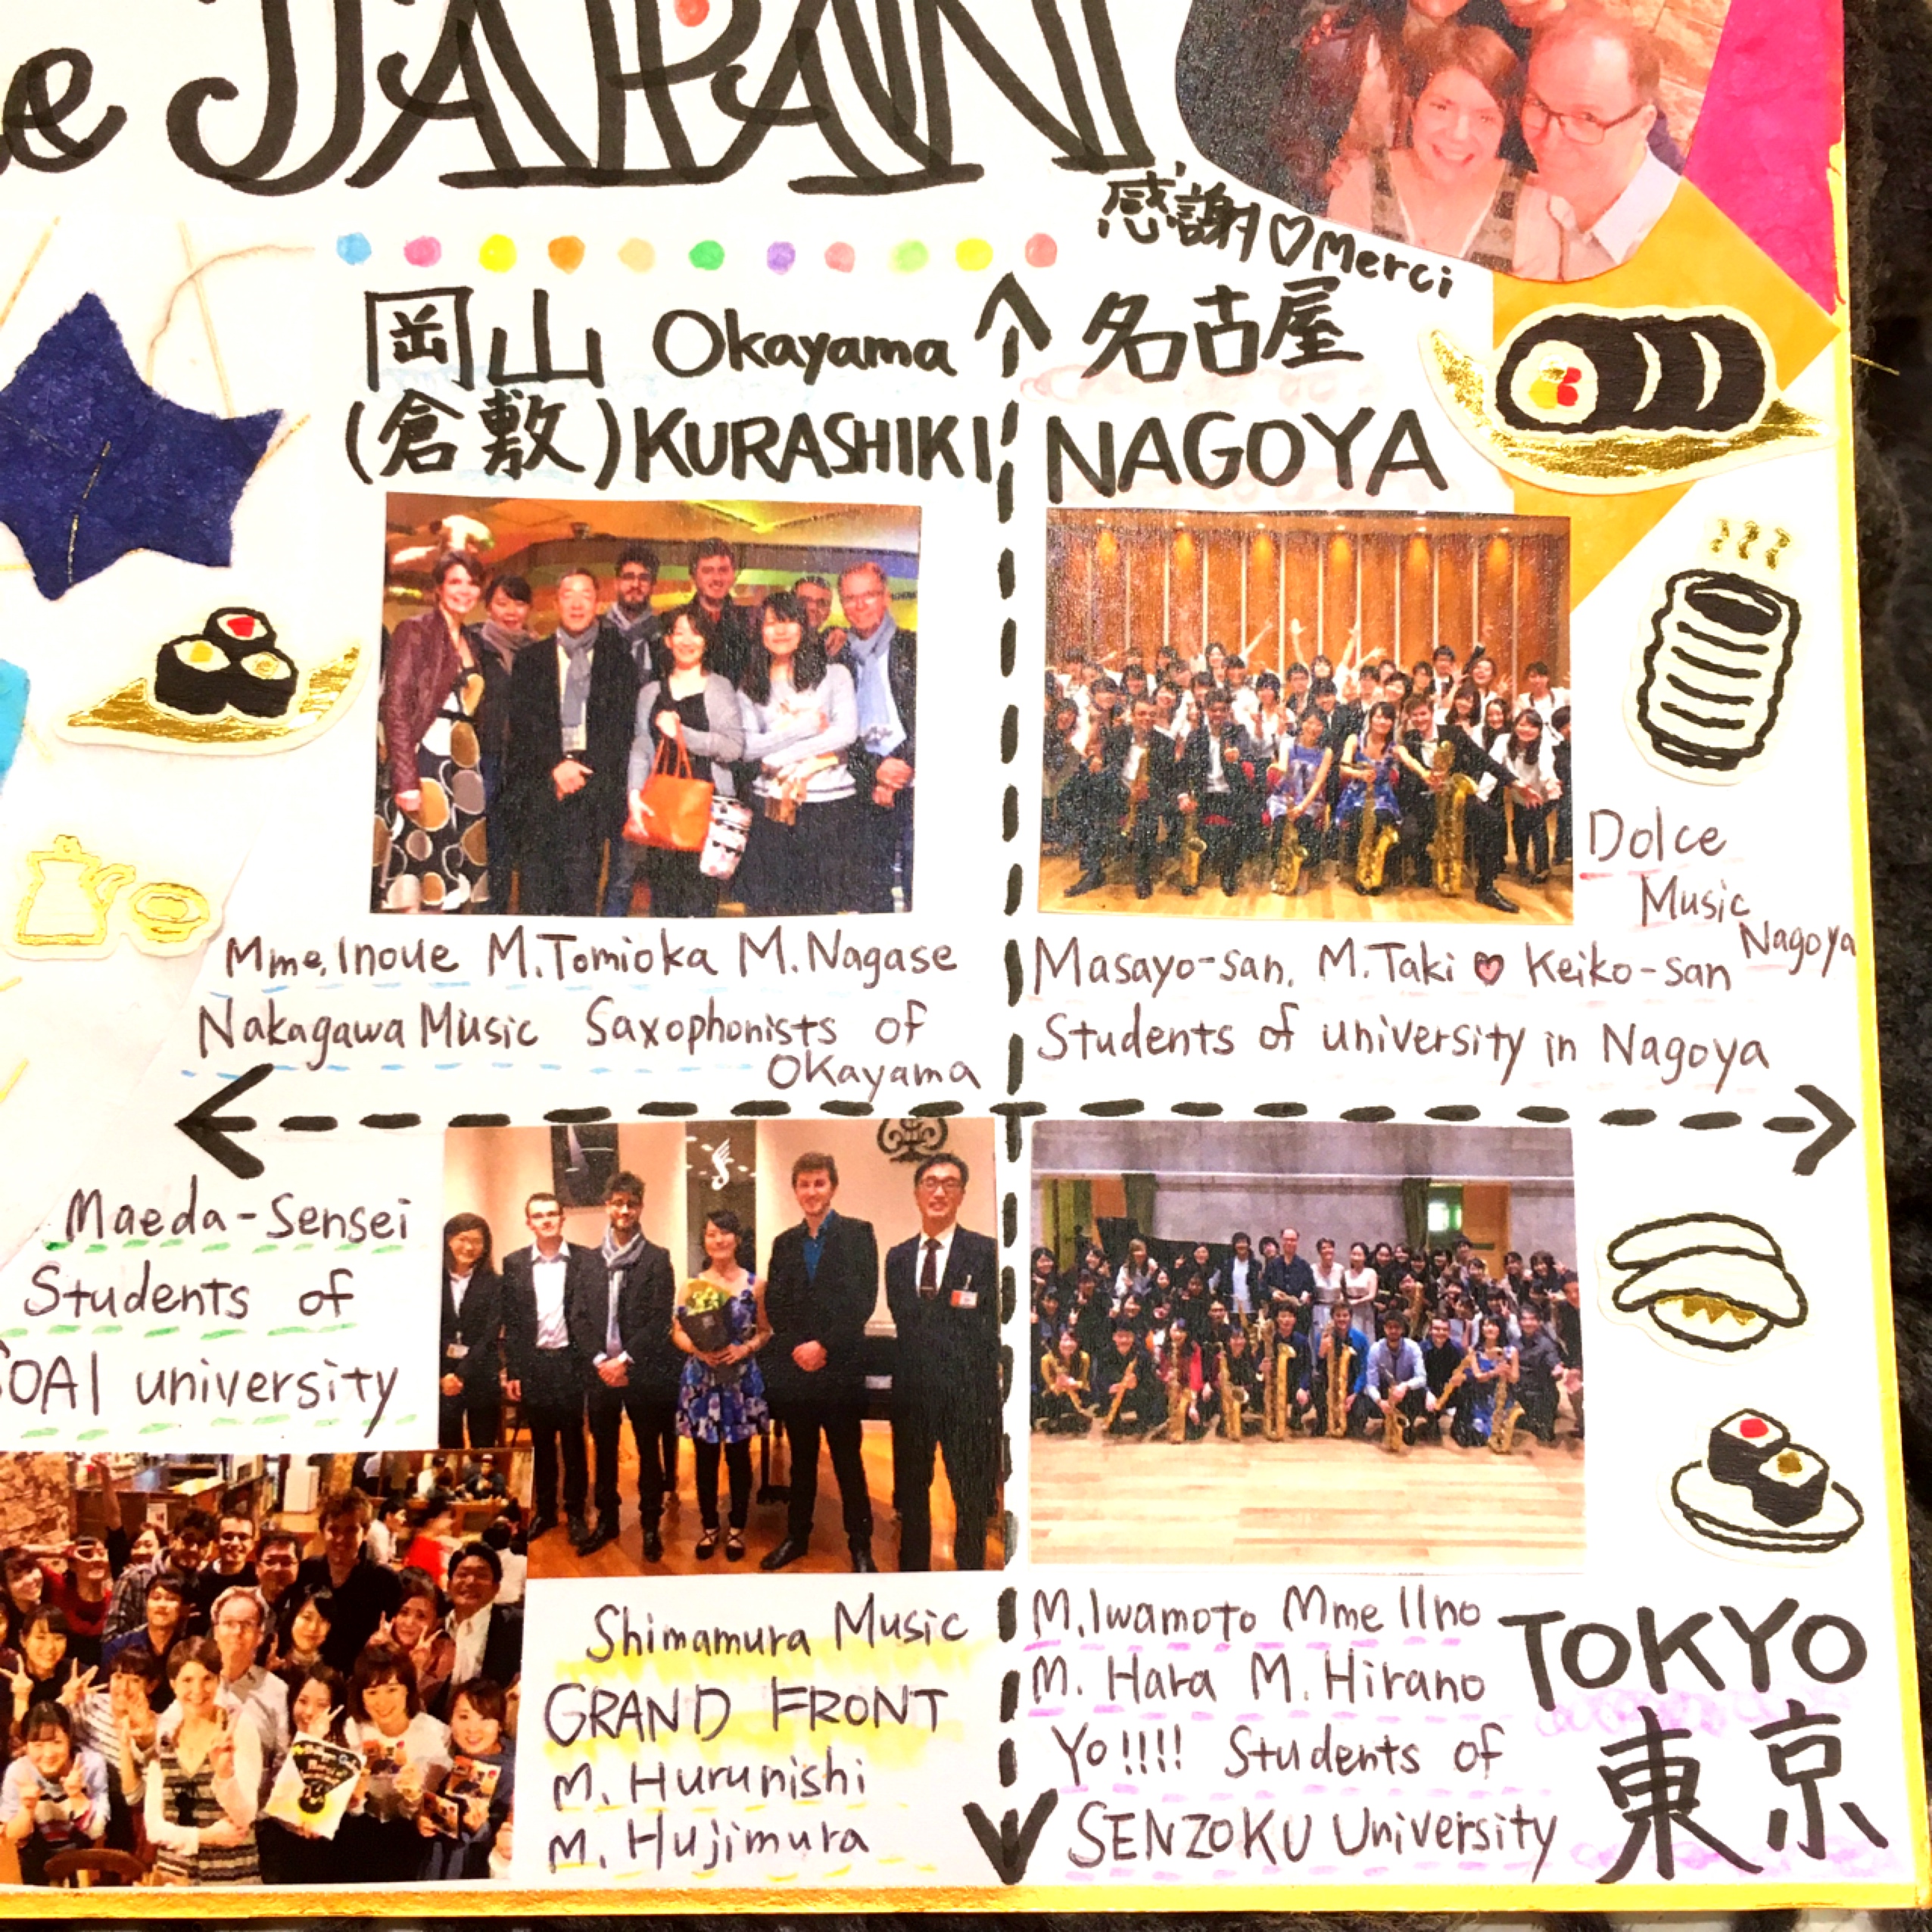 e JAPAN
感謝♡Merci
岡山 Okayama
(倉敷) KURASHIKI
名古屋
NAGOYA
Dolce
Music
Nagoya
Mme. Inoue M. Tomioka M. Nagase
Nakagawa Music Saxophonists of
Okayama
Masayo-san. M. Taki ♥ Keiko-san
Students of university in Nagoya
Maeda-Sensei
Students of
SOAI university
Shimamura Music
GRAND FRONT
M. Hurunishi
M. Hujimura
M. Iwamoto Mme IIno
M. Hara M. Hirano
Yo!!!! Students of
SENZOKU University
TOKYO
東京